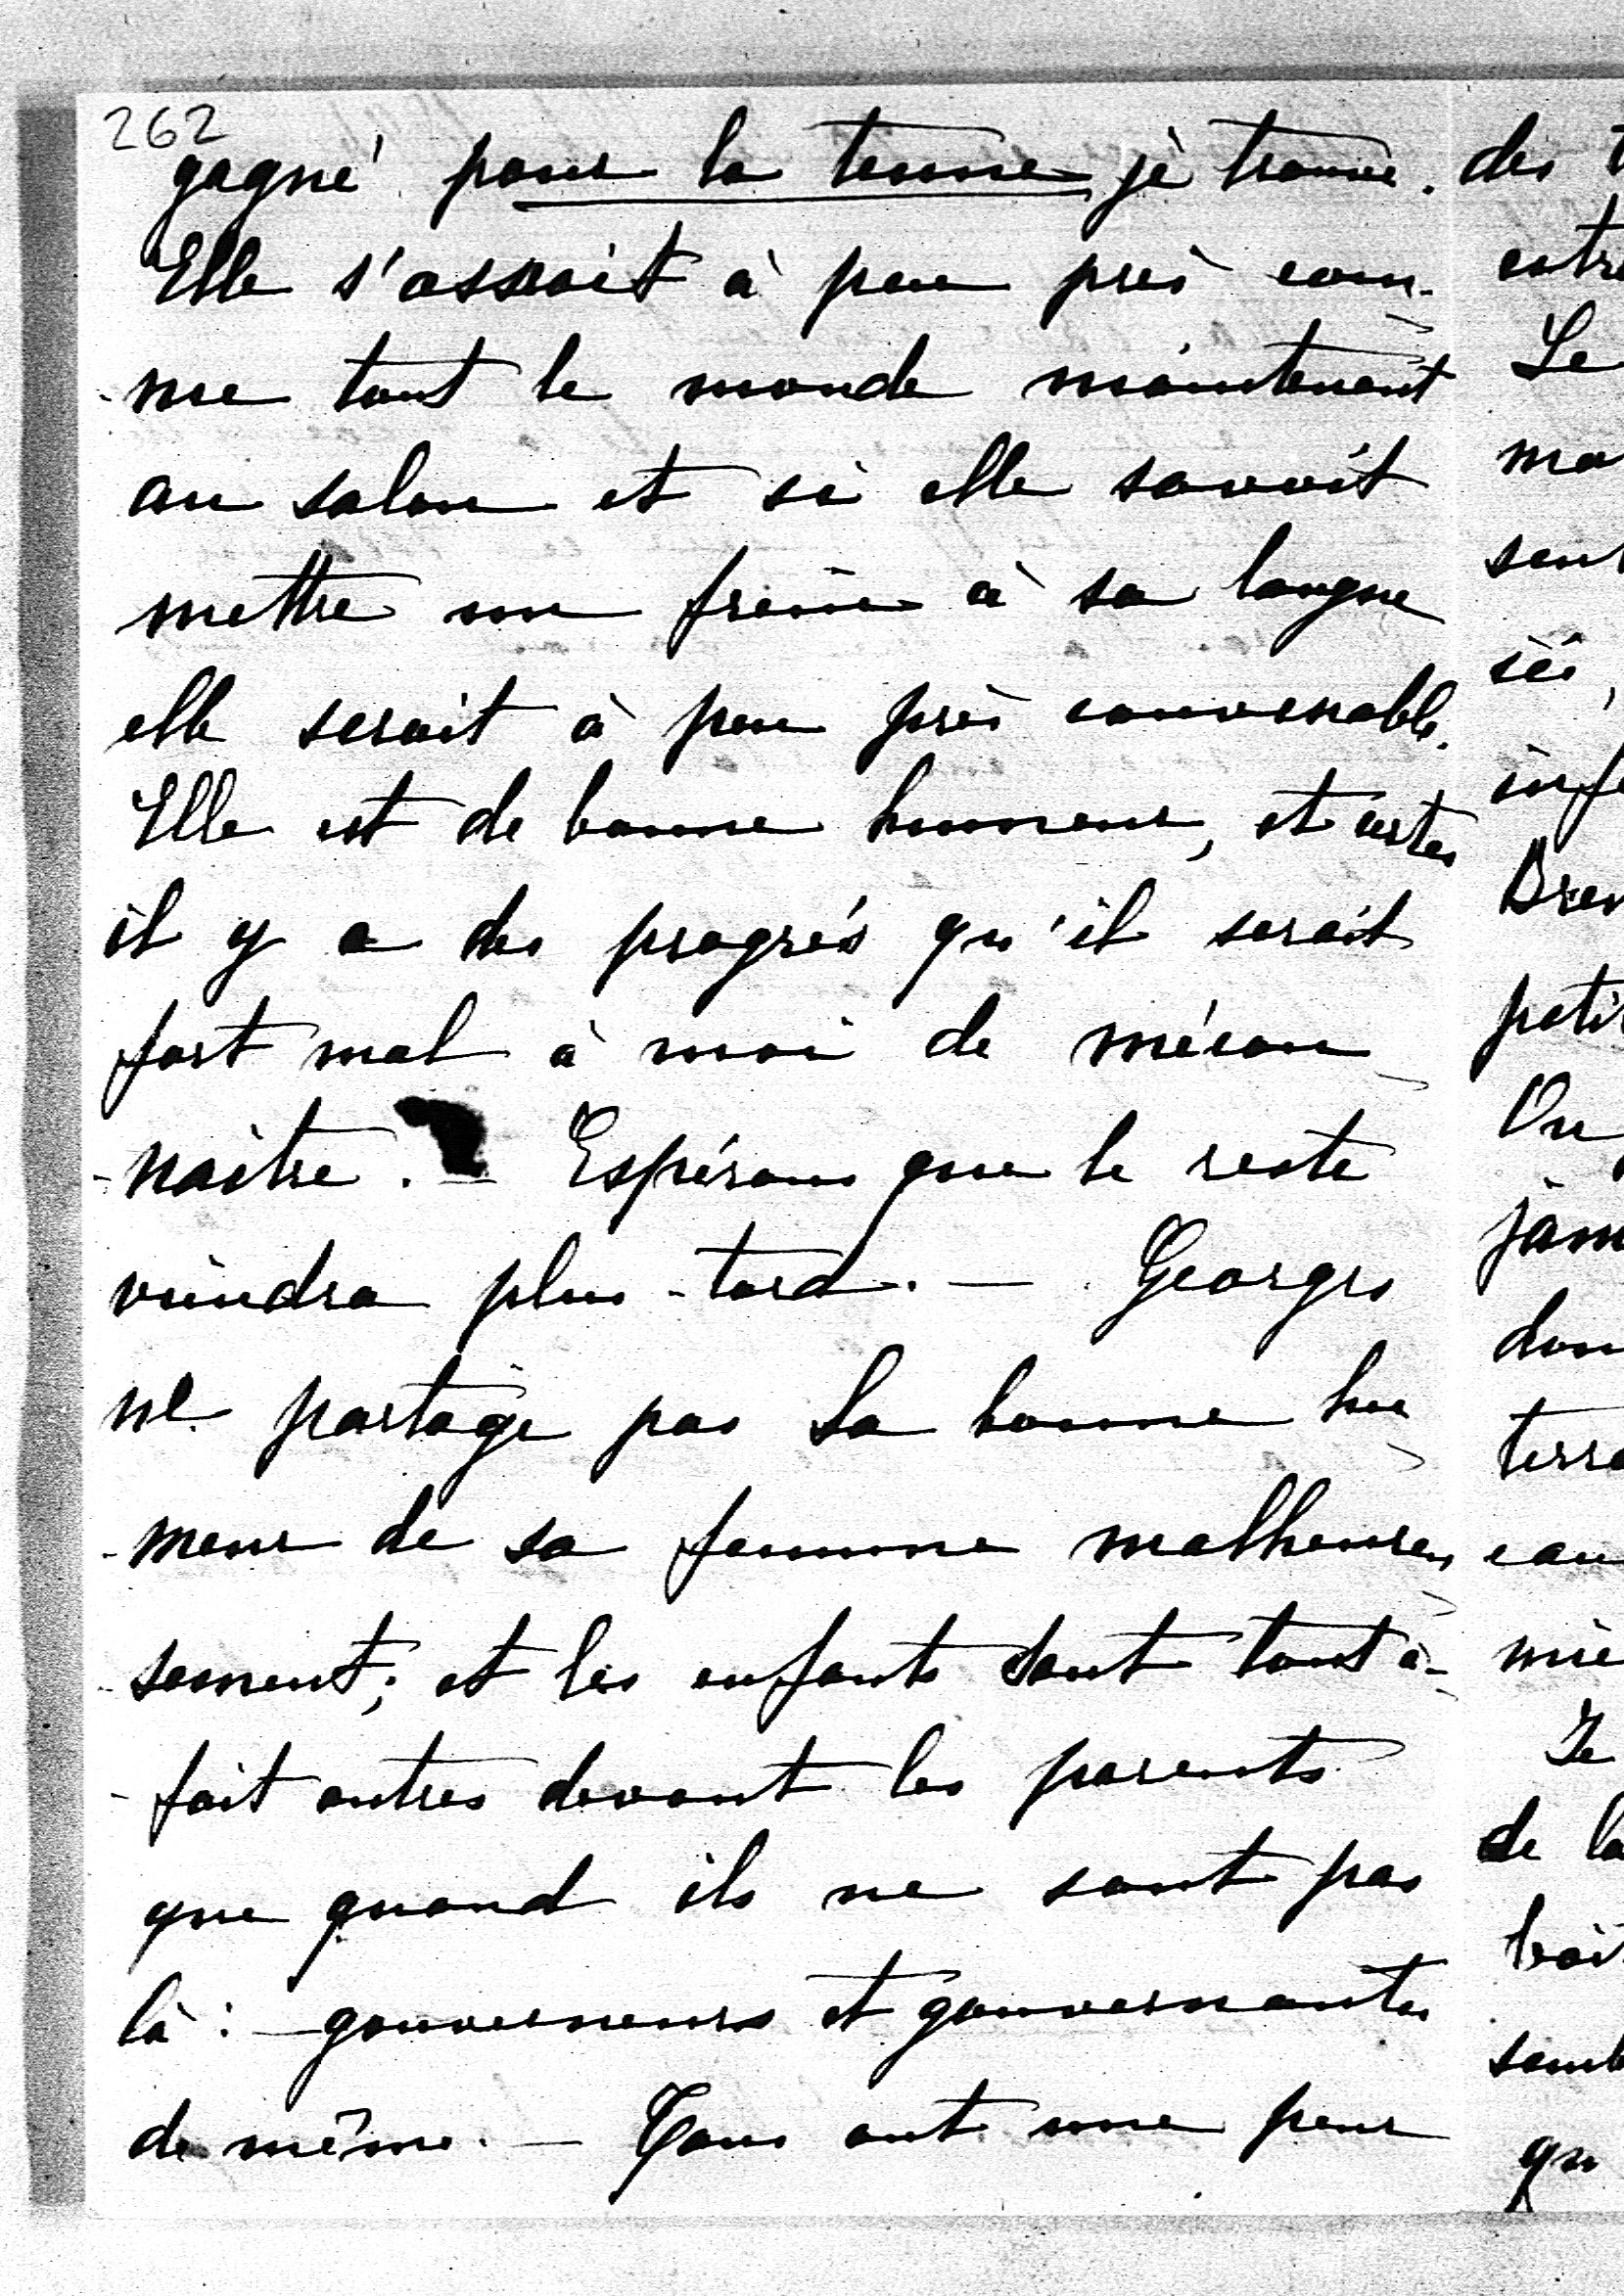 262
gagné pour la tenue je trouve.
Elle s'assoit à peu près com-
-me tout le monde maintenant
au salon et si elle savait
mettre un frein à sa langue
elle serait à peu près convenable.
Elle est de bonne humeur, et certes
il y a des progrès qu'il serait
fort mal à moi de mécon-
-naitre. — Espérons que le reste
viendra plus-tard. — Georges
ne partage pas la bonne hu-
-meur de sa femme malheureu-
-sement; et les enfants sont tout à-
-fait autres devant les parents
que quand ils ne sont pas
là: — gouverneurs et gouvernantes
de même. — Tous ont une peur
des
Le
On
Je
de la